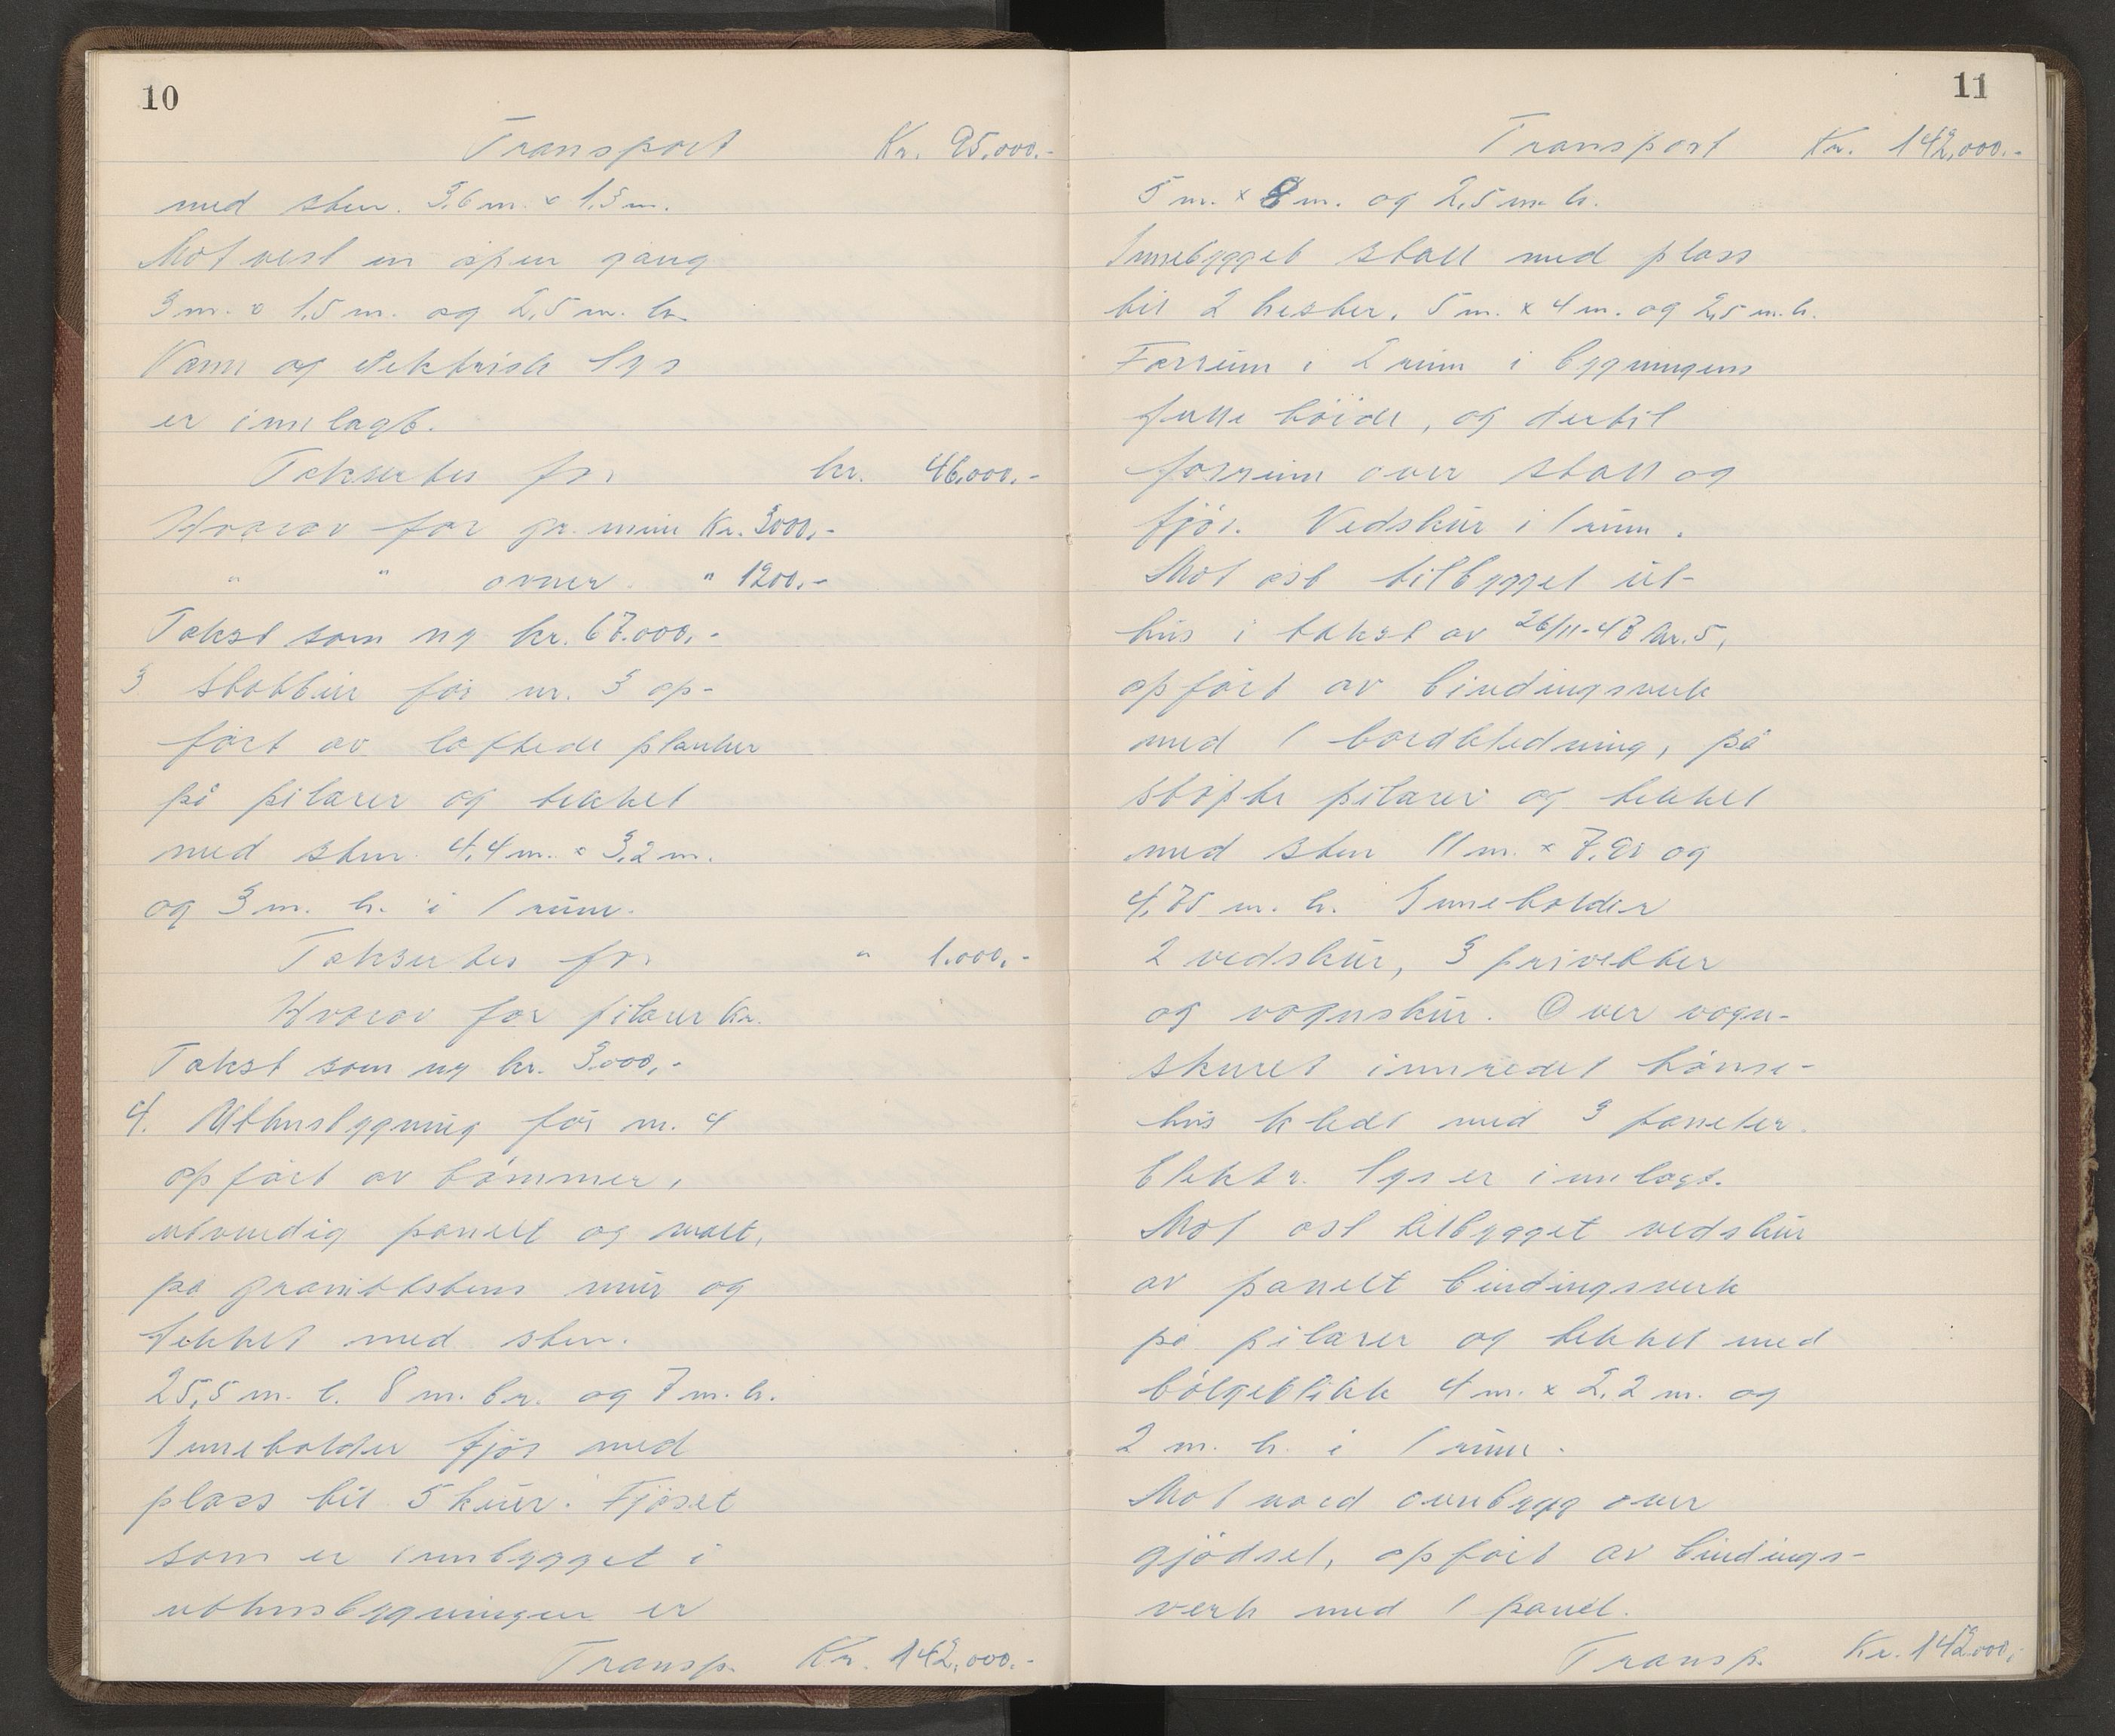 10
Transport Kr. 95.000.-
med sten. 3,6 m. x 1,3 m.
Mot vest en åpen gang
3 m. x 1,5 m. og 2,5 m. h.
Vann og elektrisk lys
er innlagt.
Takseres for kr. 46.000.-
Hvorav for gr. mur Kr. 3000,-
" " ovner. " 1200.-
Takst som ny kr. 67.000,-
3 Stabbur før nr. 3 op-
ført av laftede planker
på pilarer og tekket
med sten. 4,4 m. x 3,2 m.
og 3 m. h. i 1 rum.
Takseres for " 1.000,-
Hvorav for pilarer kr.
Takst som ny kr. 3.000,-
4. Uthusbygning før nr. 4
opført av tømmer,
utvendig panelt og malt,
på granittstens mur og
tekket med sten.
25,5 m. l. 8 m. br. og 7 m. h.
Inneholder fjøs med
plass til 5 kuer. Fjøset
som er innbygget i
uthusbygningen er
Transp. Kr. 142.000.-
11
Transport Kr. 142.000.-
5 m. x 8 m. og 2,5 m. h.
Innebygget stall med plass
til 2 hester. 5 m. x 4 m. og 2,5 m. h.
Forrum i 2 rum i bygningens
fulle høide, og dertil
forrum over stall og
fjøs. Vedskur i 1 rum.
Mot øst tilbygget ut-
hus i takst av 26/11-48 nr. 5,
opført av bindingsverk
med 1 bordkledning, på
støpte pilarer og tekket
med sten 11 m. x 7,90 og
4,75 m. h. Inneholder
2 vedskur, 3 privetter
og vognskur. Over vogn-
skuret innredet hønse-
hus kledt med 3 paneler.
Elektr. lys er innlagt.
Mot øst tilbygget vedskur
av panelt bindingsverk
på pilarer og tekket med
bølgeblikk 4 m. x 2,2 m. og
2 m. h. i 1 rum.
Mot nord overbygg over
gjødsel, opført av bindings-
verk med 1 panel.
Transp. Kr. 142.000,-